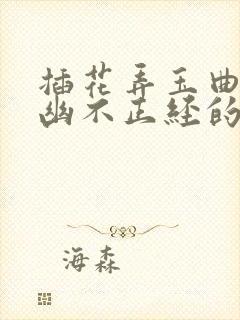 插花弄玉曲
幽不正经的
海森